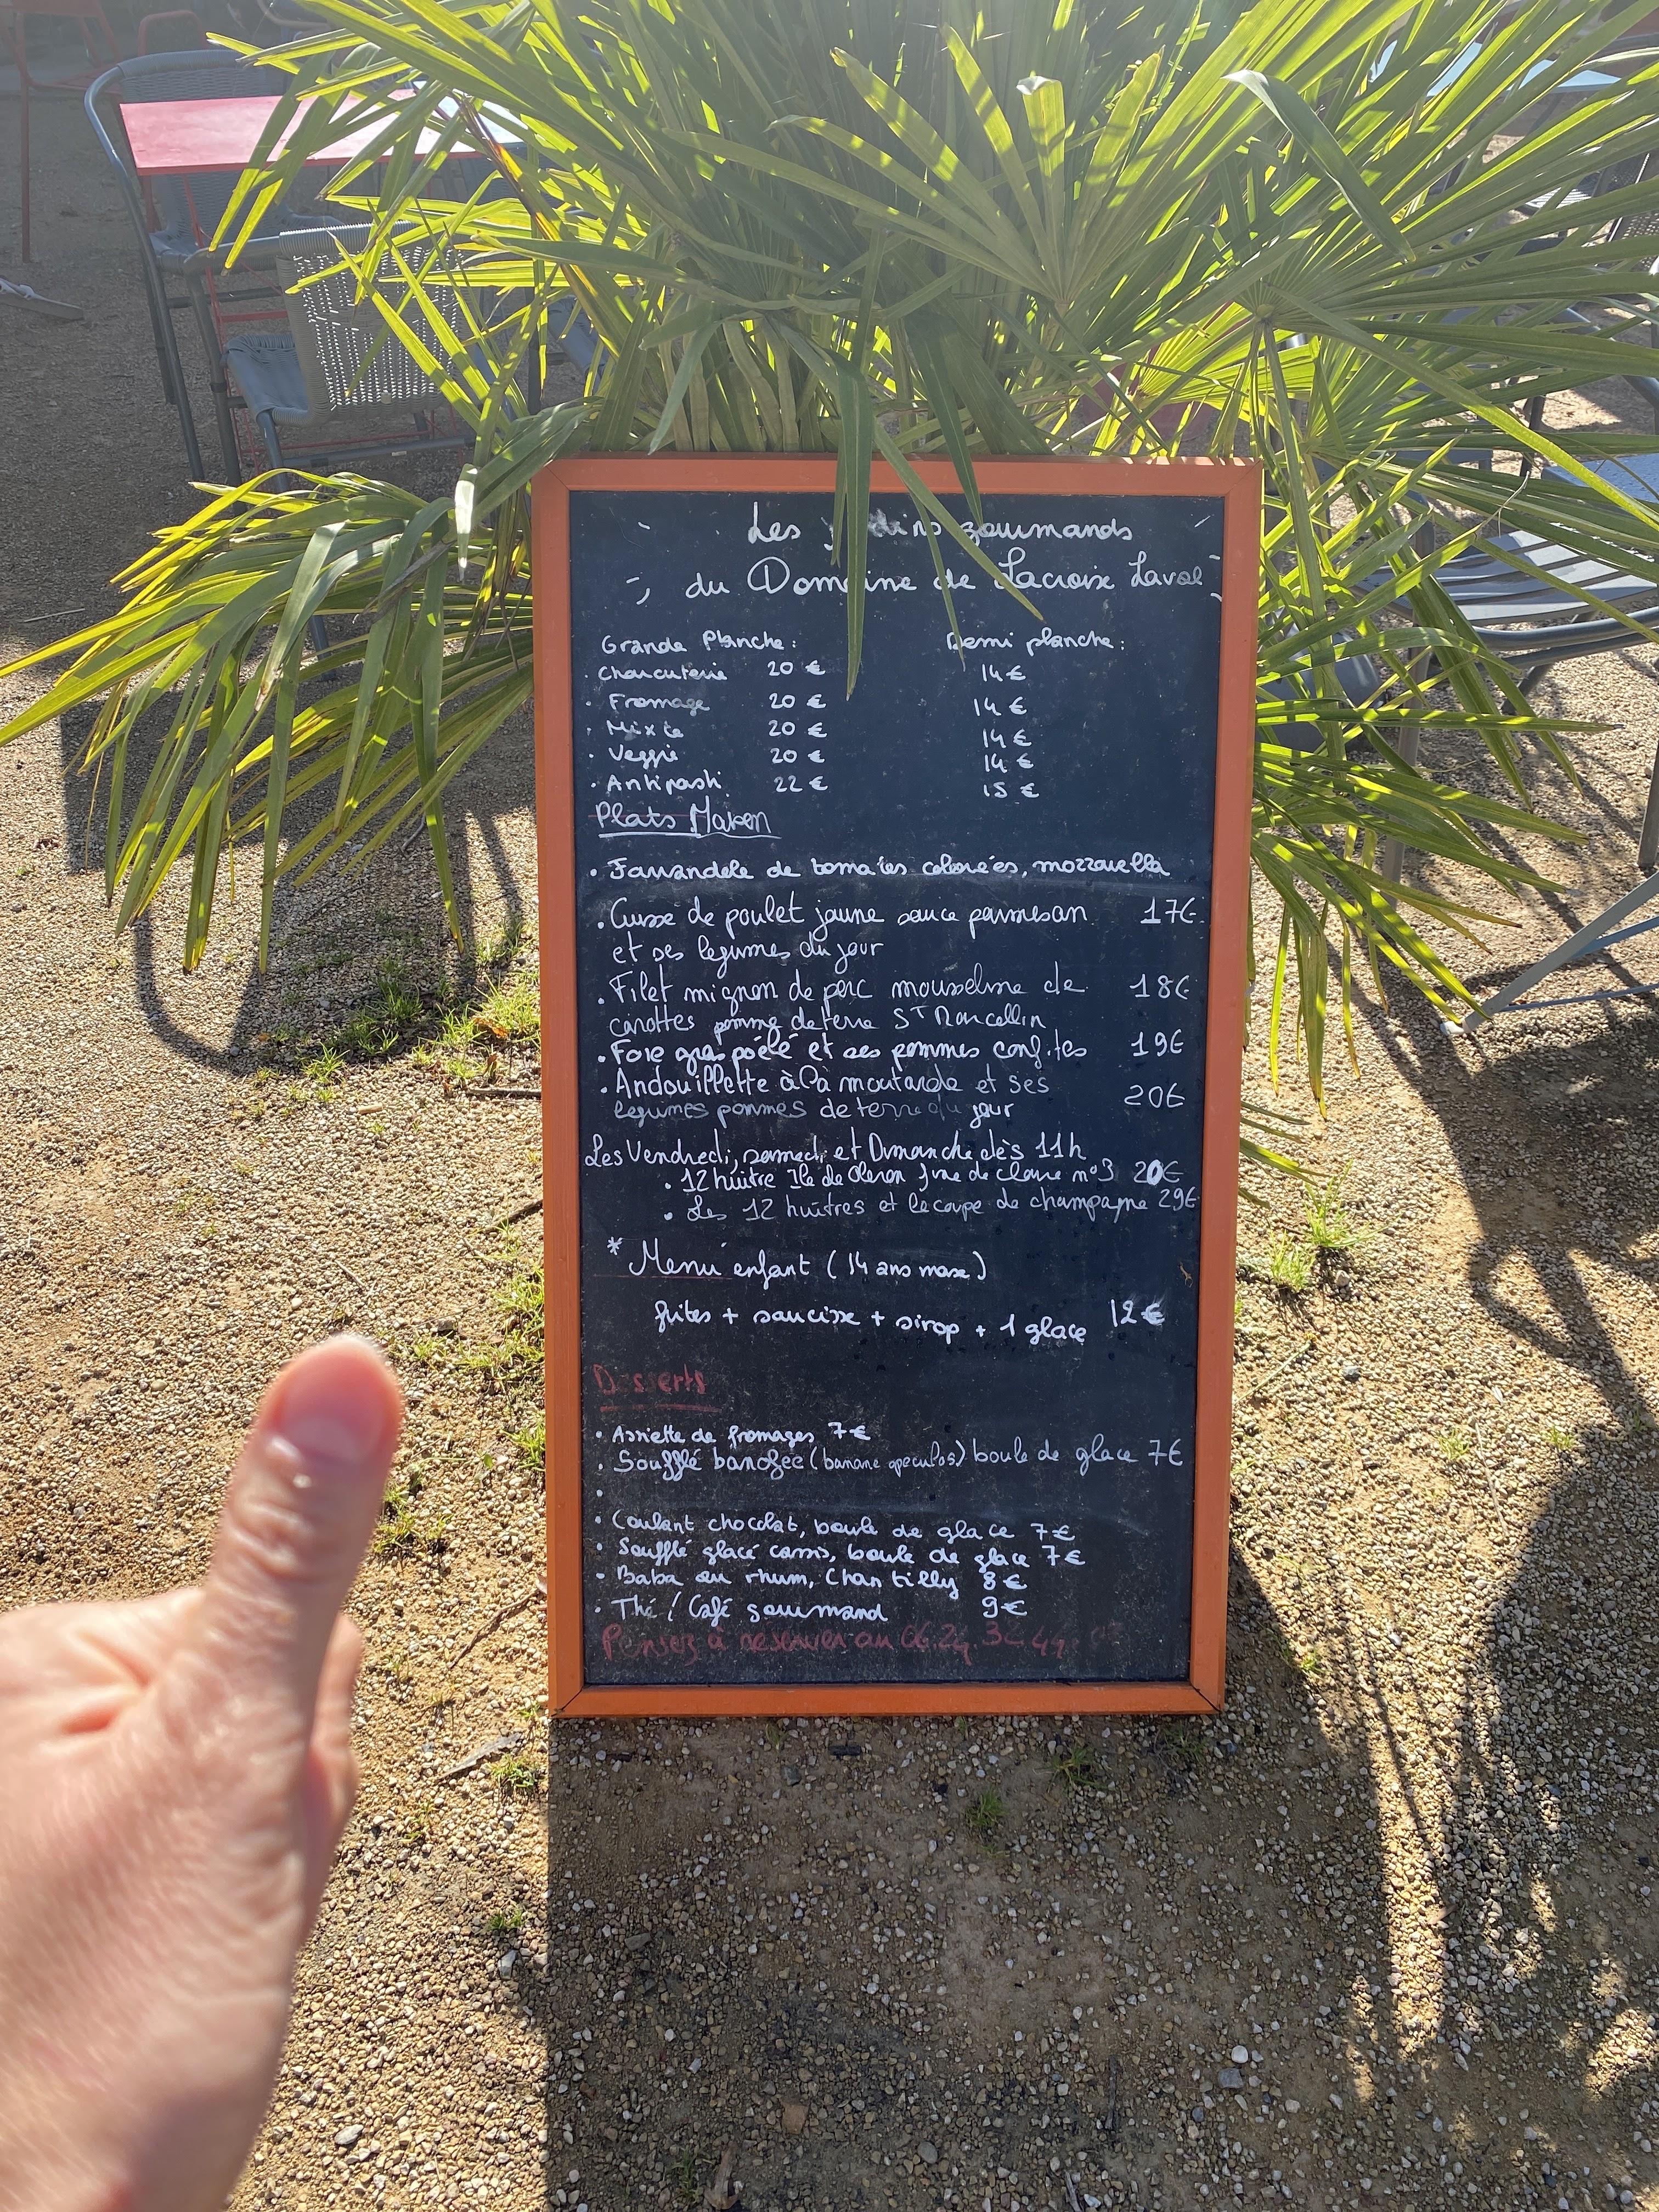 Les gourmands
du Domaine de Lacroix Laval
Grande Planche : Demi planche :
· Charcuterie 20 € 14 €
· Fromage 20 € 14 €
· Mixte 20 € 14 €
· Veggie 20 € 14 €
· Antipasti 22 € 15 €
Plats Maison
· Farandole de tomates colorées, mozzarella
· Cuisse de poulet jaune sauce parmesan 17€
et ses legumes du jour
· Filet mignon de porc mousseline de 18€
carottes pomme de terre ST Marcellin
· Foie gras poêlé et ses pommes confites 19€
· Andouillette à la moutarde et ses 20€
legumes pommes de terre du jour
Les Vendredi, samedi et Dimanche dès 11h
· 12 huitre Ile de Oleron fine de Claire n°3 20€
· Les 12 huitres et la coupe de champagne 29€
* Menu enfant (14 ans max)
frites + saucisse + sirop + 1 glace 12€
Desserts
· Assiette de fromages 7€
· Soufflé banofee (banane speculos) boule de glace 7€
·
· Coulant chocolat, boule de glace 7€
· Soufflé glacé cassis, boule de glace 7€
· Baba au rhum, Chantilly 8€
· Thé / Café gourmand 9€
Pensez à réserver au 06.24.